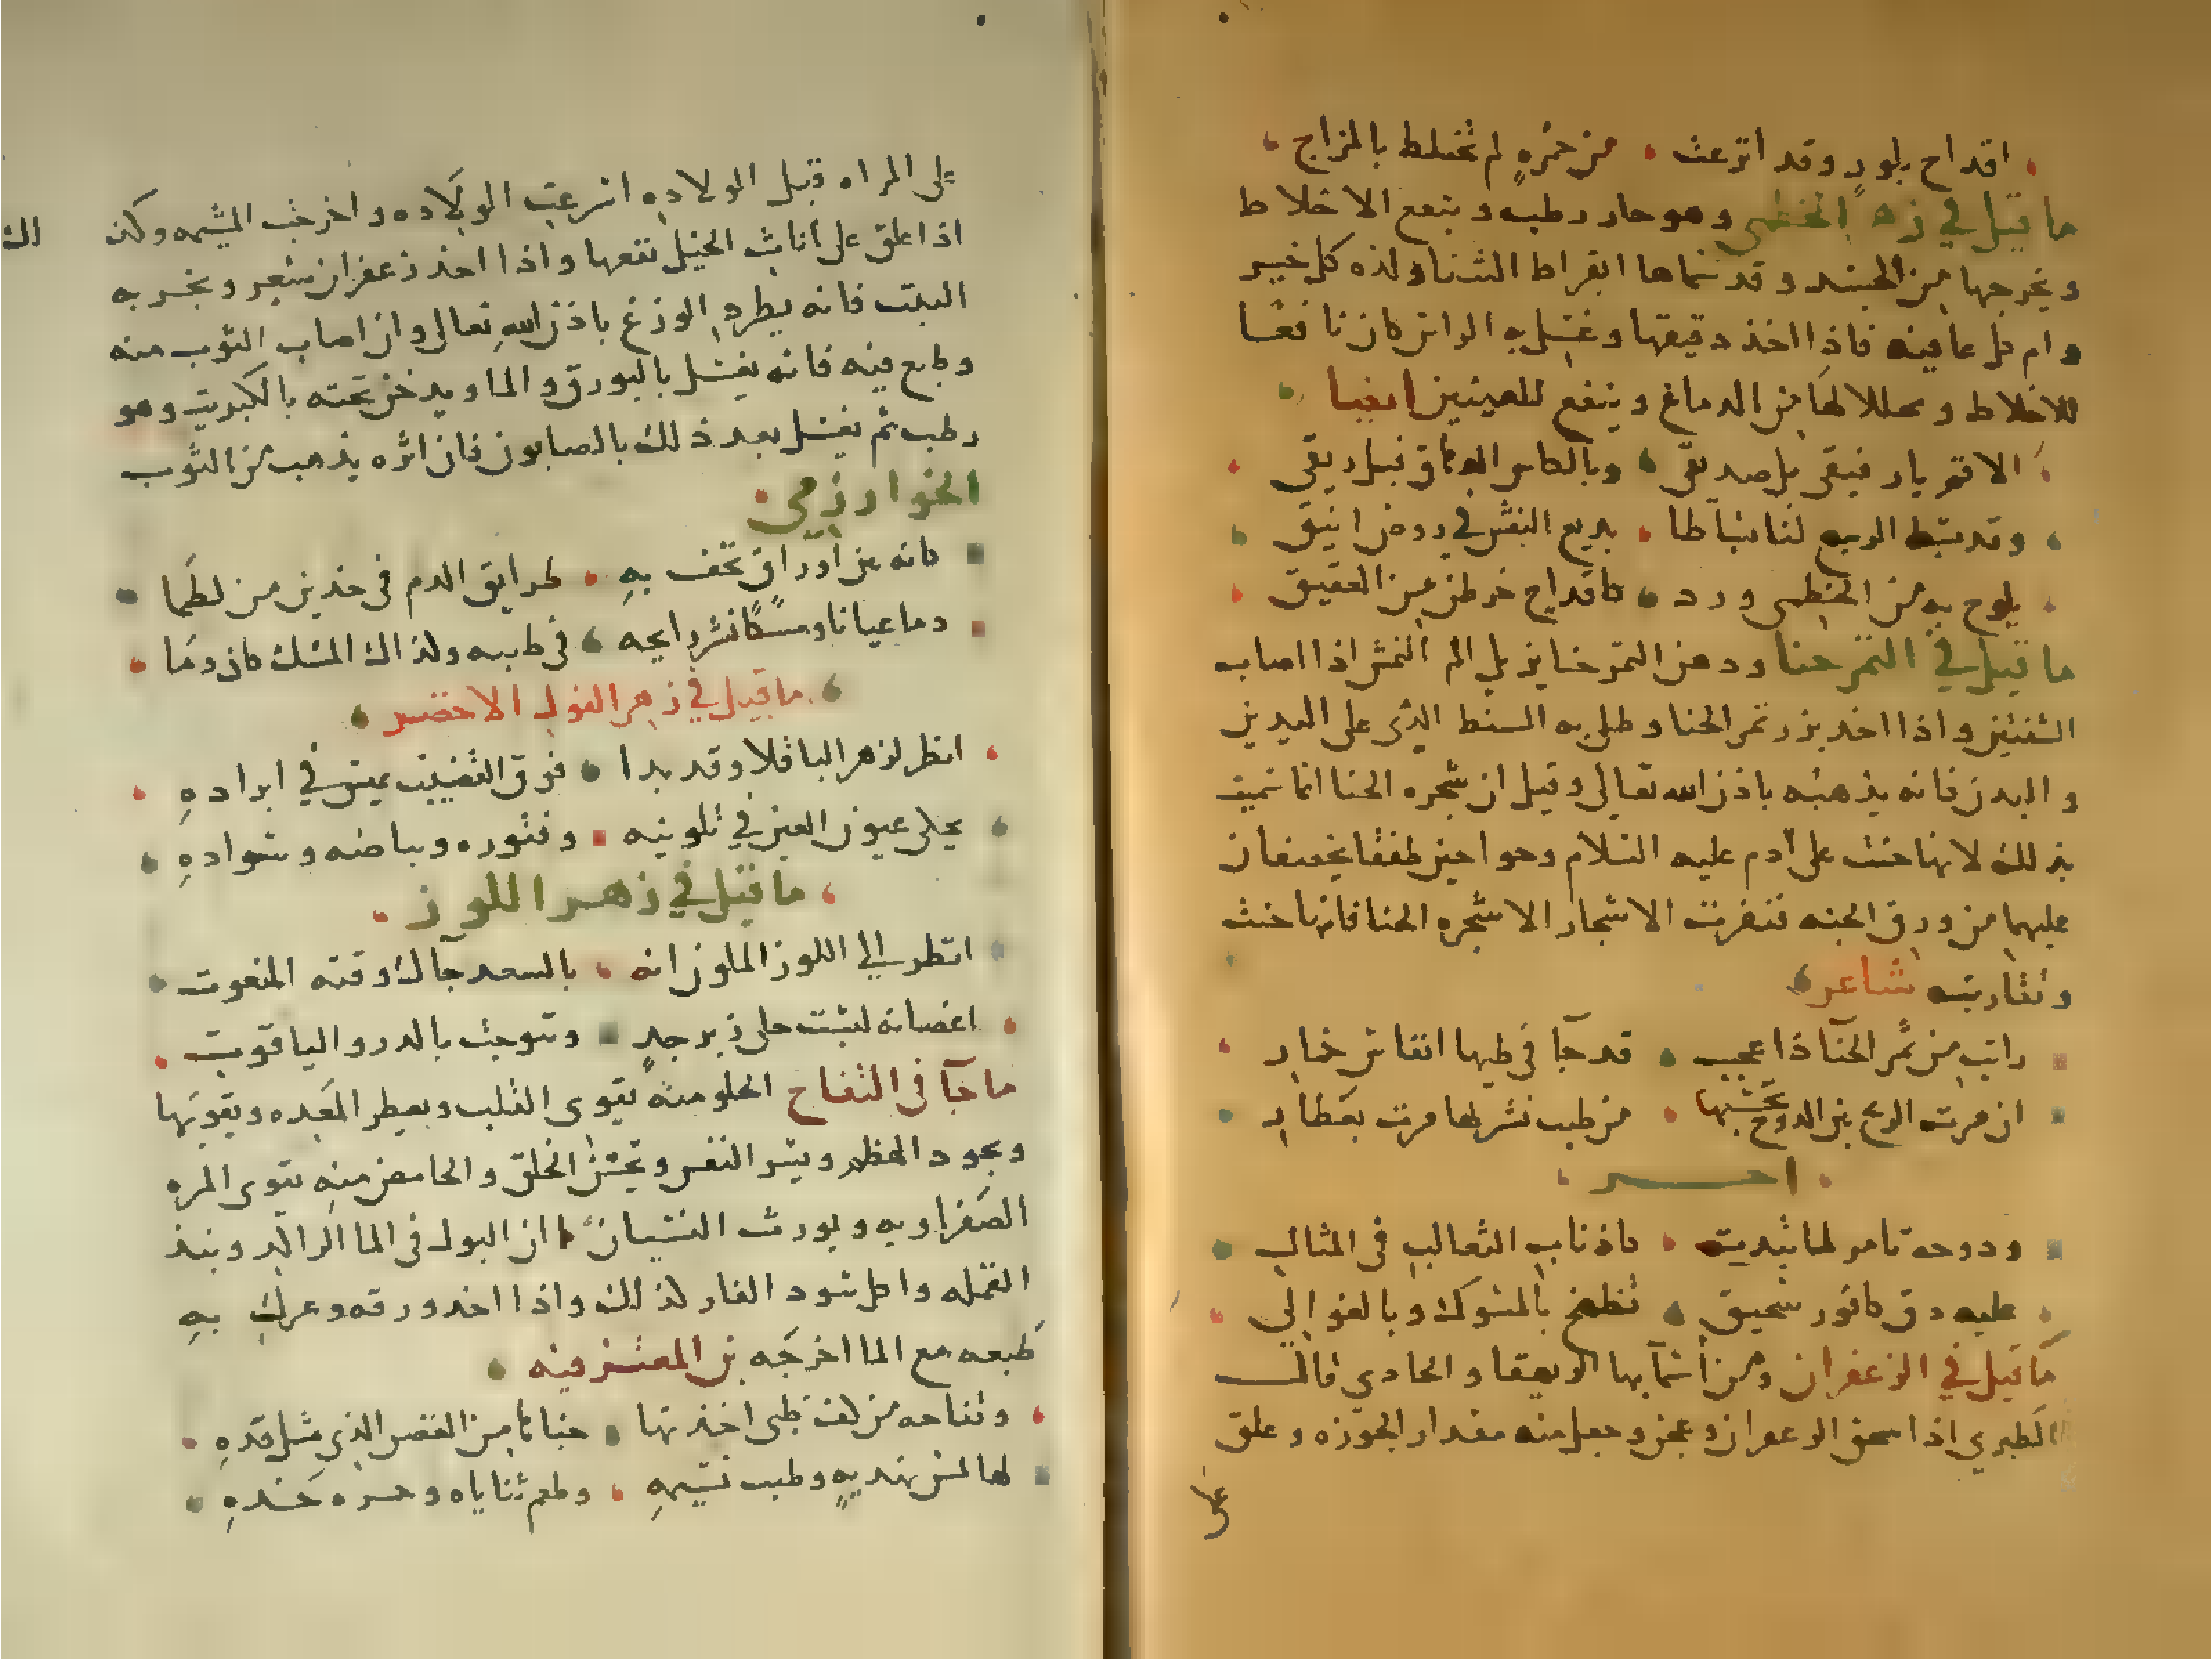 اقداح بلور وقد اترعت من خمرةٍ لم تختلط بالمزاج
ما قيل في زهر الخطمى وهو حار رطب وينفع الاخلاط
ويخرجها من الجسد وقد سماها ابقراط لذه كل خير
وام كل عافيه فاذا اخذ دقيقها وغسل به الراس كان نافعا
للاخلاط ومحللا لها من الدماغ وينفع للعينين ايضا
الا قم يا رفيقى بل صديقى وبالكاس قبل ريقى
وقد بسط الربيع لنا بساطا بديع النقش في روض انيق
يلوح به من الخطمى ورد كاقداح خرطن من العقيق
ما قيل في التمر حنا ودهن التمر حنا يزيل الم النمش اذا اصاب
الشفتين واذا اخد بزر تمر الحنا وطلى به السنط الذى على اليدين
والبدن فانه يذهبه باذن الله تعالى وقيل ان شجره الحنا انما سميت
بذلك لانها حنت على ادم عليه السلام وحوا حين طفقا يخصفان
عليهما من ورق الجنه فنفرت الاشجار الا شجره الحنا فانها حنت
شاعر
رايت من تمر الحنا ذا عجب قد جا في طيها انفاس
ان مرت الريح بين الدوح تحسبها من طيب نشر لها مرت بعطار
اخر
ودوحة تامر لما تبدت كاذناب الثعالب في المثال
عليه دق كافور سحيق تضمخ بالمسوك وبالغوالي
ما قيل في الزعفران ومن اسمايها الريهقا والجادي قال
الطبري اذا سحق الزعفران وعجن وجعل منه مقدار الجوزه وعلق
على
على المراه قبل الولاده اسرعت الولاده واخرجت المشيمه وكذلك
اذا علق على اناث الخيل نفعها واذا اخذ زعفران شعر وبخر به
البيت فانه يطرد الوزغ باذن الله تعالى وان اصاب الثوب منه
وطبع فيه فانه يغسل بالبورق والما ويدخن تحته بالكبريت وهو
رطب ثم يغسل بعد ذلك بالصابون فان اثره يذهب من الثوب
الخوارزمي
كانه بين اوراق تحف به طرايق الدم في خدين من لطما
دما عيانا ومسكًا نشر رايحه في طيبه ولذاك المسك كان دما
ما قيل في زهر الفول الاخضر
انظر لزهر الباقلا وقد بدا فوق القضيب يميس في ابراده
يحلى عيون العين في تلوينه وفتوره وبياضه وسواده
ما قيل في زهر اللوز
انظر الى اللوز الملوز انه بالسعد جاك وقته المنعوت
اغصانه لبست حلى زبرجد وتتوجت بالدر والياقوت
ما جا في التفاح الحلو منه يقوى القلب ويعطر المعده ويقويها
ويجود الهظم ويسر النفس ويحسن الخلق والحامض منه يقوى المره
الصفراويه ويورث النسيان ان البول في الما الراكد ونبذ
القمله واكل سود الفار كذلك واذا اخد ورقه وعرك به
طبعه مع الما اخرجه بن المعتز فيه
وتفاحه من كف ظبى اخذتها جناها من الغصن الذي مثل قده
لها لمس نهديه وطيب نسيمه وطعم ثناياه وحمره خده